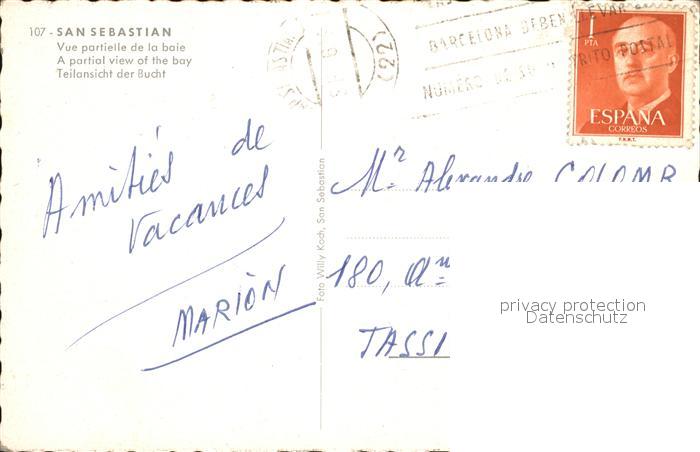 107 - SAN SEBASTIAN
Vue partielle de la baie
A partial view of the bay
Teilansicht der Bucht
(22)
BARCELONA DEBEN LLEVAR
NUMERO
DISTRITO POSTAL
1
PTA
ESPAÑA
CORREOS
F.N.M.T.
Amitiés de
Vacances
MARIÒN
Foto Willy Koch, San Sebastian
Mr Alexandre COLOMB
180,
TASSI
privacy protection
Datenschutz